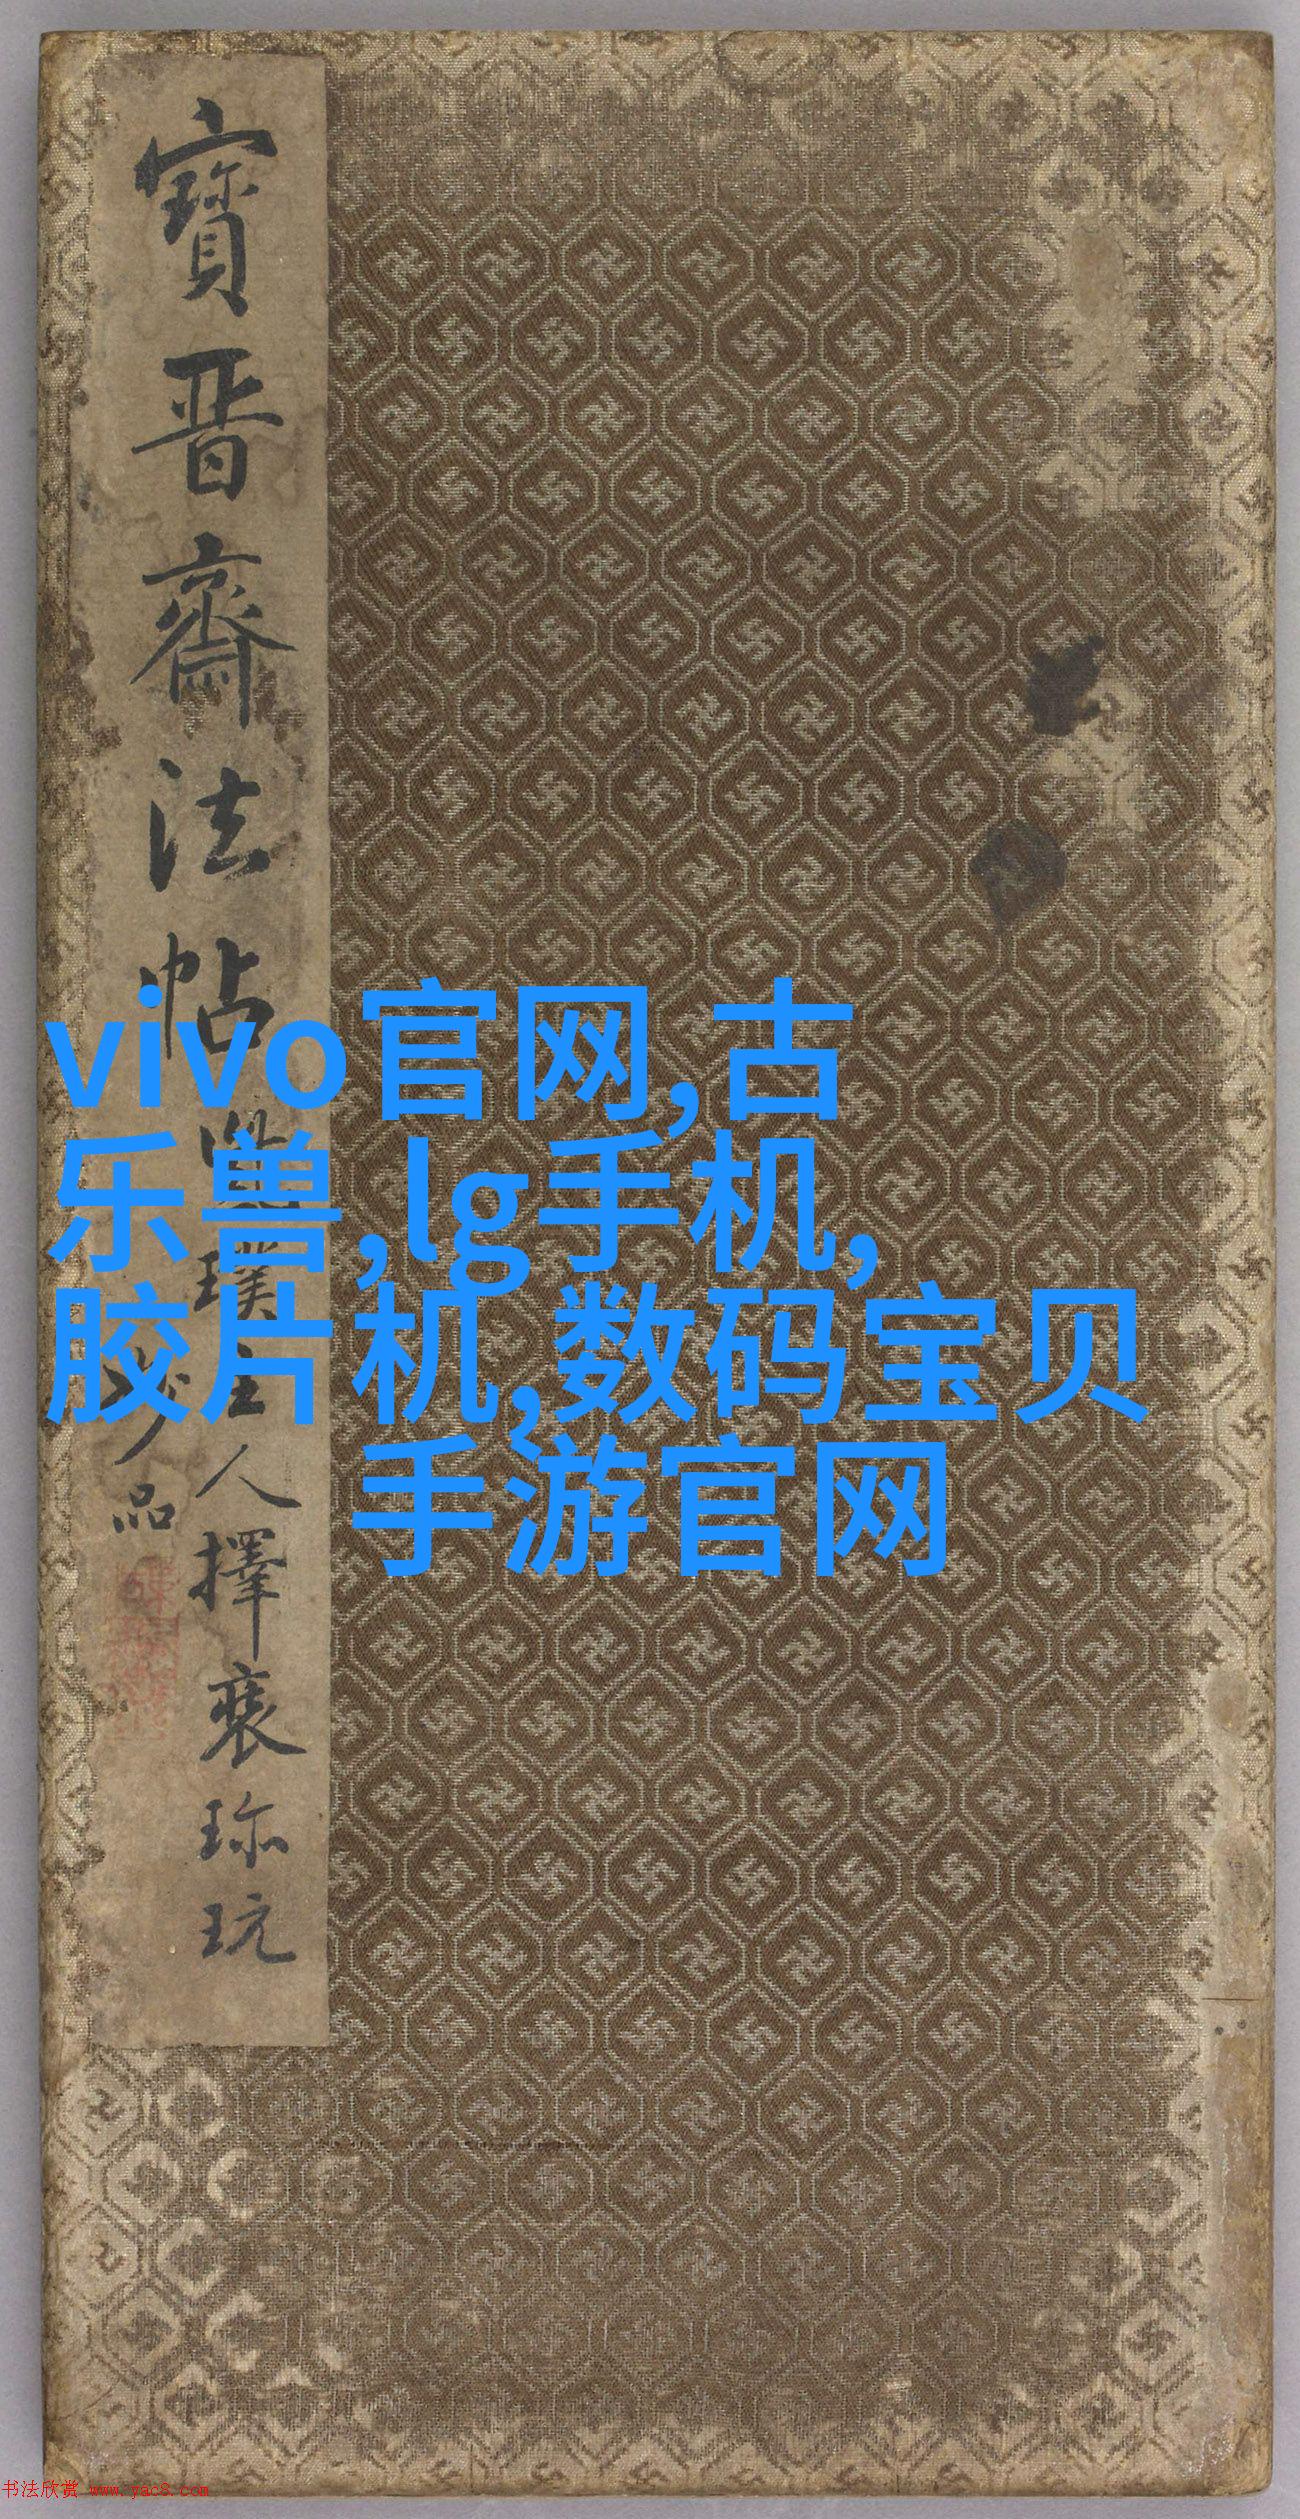 寳晋齋法帖
璞主人擇裘珎玩
品
vivo官网,古
乐兽,lg手机,
胶片机,数码宝贝
手游官网
书法欣赏 www.yac8.com